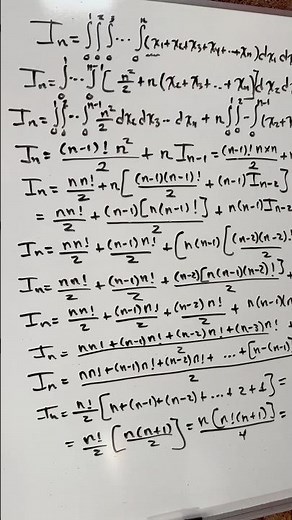 Iₙ = ∫₀¹∫₀²∫₀³ ... ∫₀ⁿ (x₁+x₂+x₃+x₄+...+xₙ)dx₁ dx₂
Iₙ = ∫₀¹ ... ∫₀ⁿ⁻¹ [n²/2 + n(x₂+x₃+...+xₙ)]dx₂ d
Iₙ = ∫₀¹∫₀² ... ∫₀ⁿ⁻¹ n²/2 dx₂ dx₃ ... dxₙ + n∫₀¹∫₀² ... ∫₀ⁿ⁻¹ (x₂+x
Iₙ = (n-1)! n²/2 + n Iₙ₋₁ = (n-1)! n×n/2 + n
Iₙ = nn!/2 + n[(n-1)(n-1)!/2 + (n-1)Iₙ₋₂]
= nn!/2 + (n-1)[n(n-1)!]/2 + n(n-1)Iₙ₋₂
Iₙ = nn!/2 + (n-1)n!/2 + (n(n-1)[(n-2)(n-2)!
Iₙ = nn!/2 + (n-1)n!/2 + (n-2)[n(n-1)(n-2)!]/2 +
Iₙ = nn!/2 + (n-1)n!/2 + (n-2)n!/2 + n(n-1)(n
Iₙ = nn!+(n-1)n!+(n-2)n!+(n-3)n!+/2
Iₙ = nn!+(n-1)n!+(n-2)n!+ ... +[n-(n-1)]/2
Iₙ = n!/2 [n+(n-1)+(n-2)+...+2+1] =
= n!/2 [n(n+1)/2] = n[n!(n+1)]/4 =